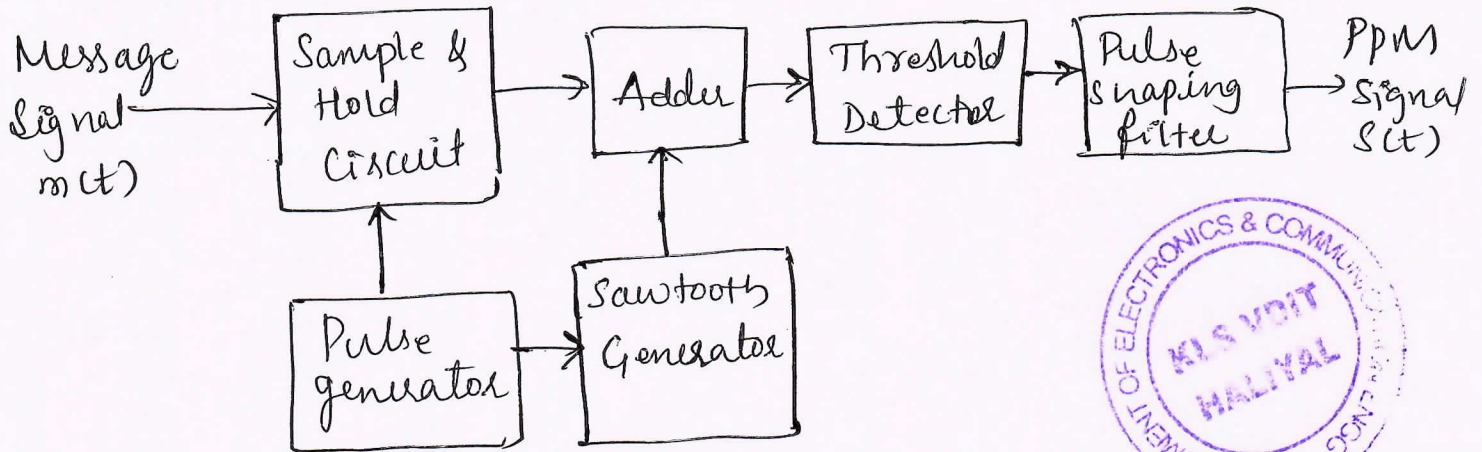 Message
Signal
m(t)
Sample &
Hold
Circuit
Adder
Threshold
Detector
Pulse
snaping
filter
PPM
Signal
S(t)
Pulse
generator
Sawtooth
Generator
OF ELECTRONICS & COMMUN
KLS VDIT
HALIYAL
ENGG